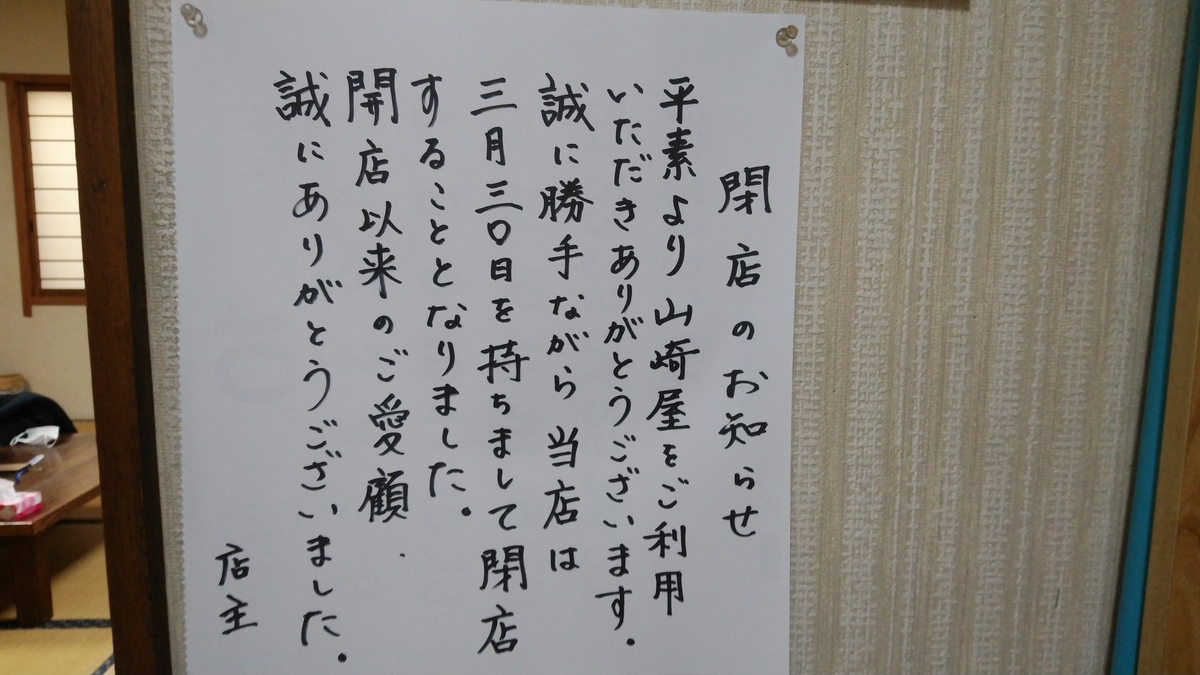 閉店のお知らせ
平素より山崎屋をご利用
いただきありがとうございます.
誠に勝手ながら当店は
三月三〇日を持ちまして閉店
することとなりました.
開店以来のご愛顧.
誠にありがとうございました.
店主